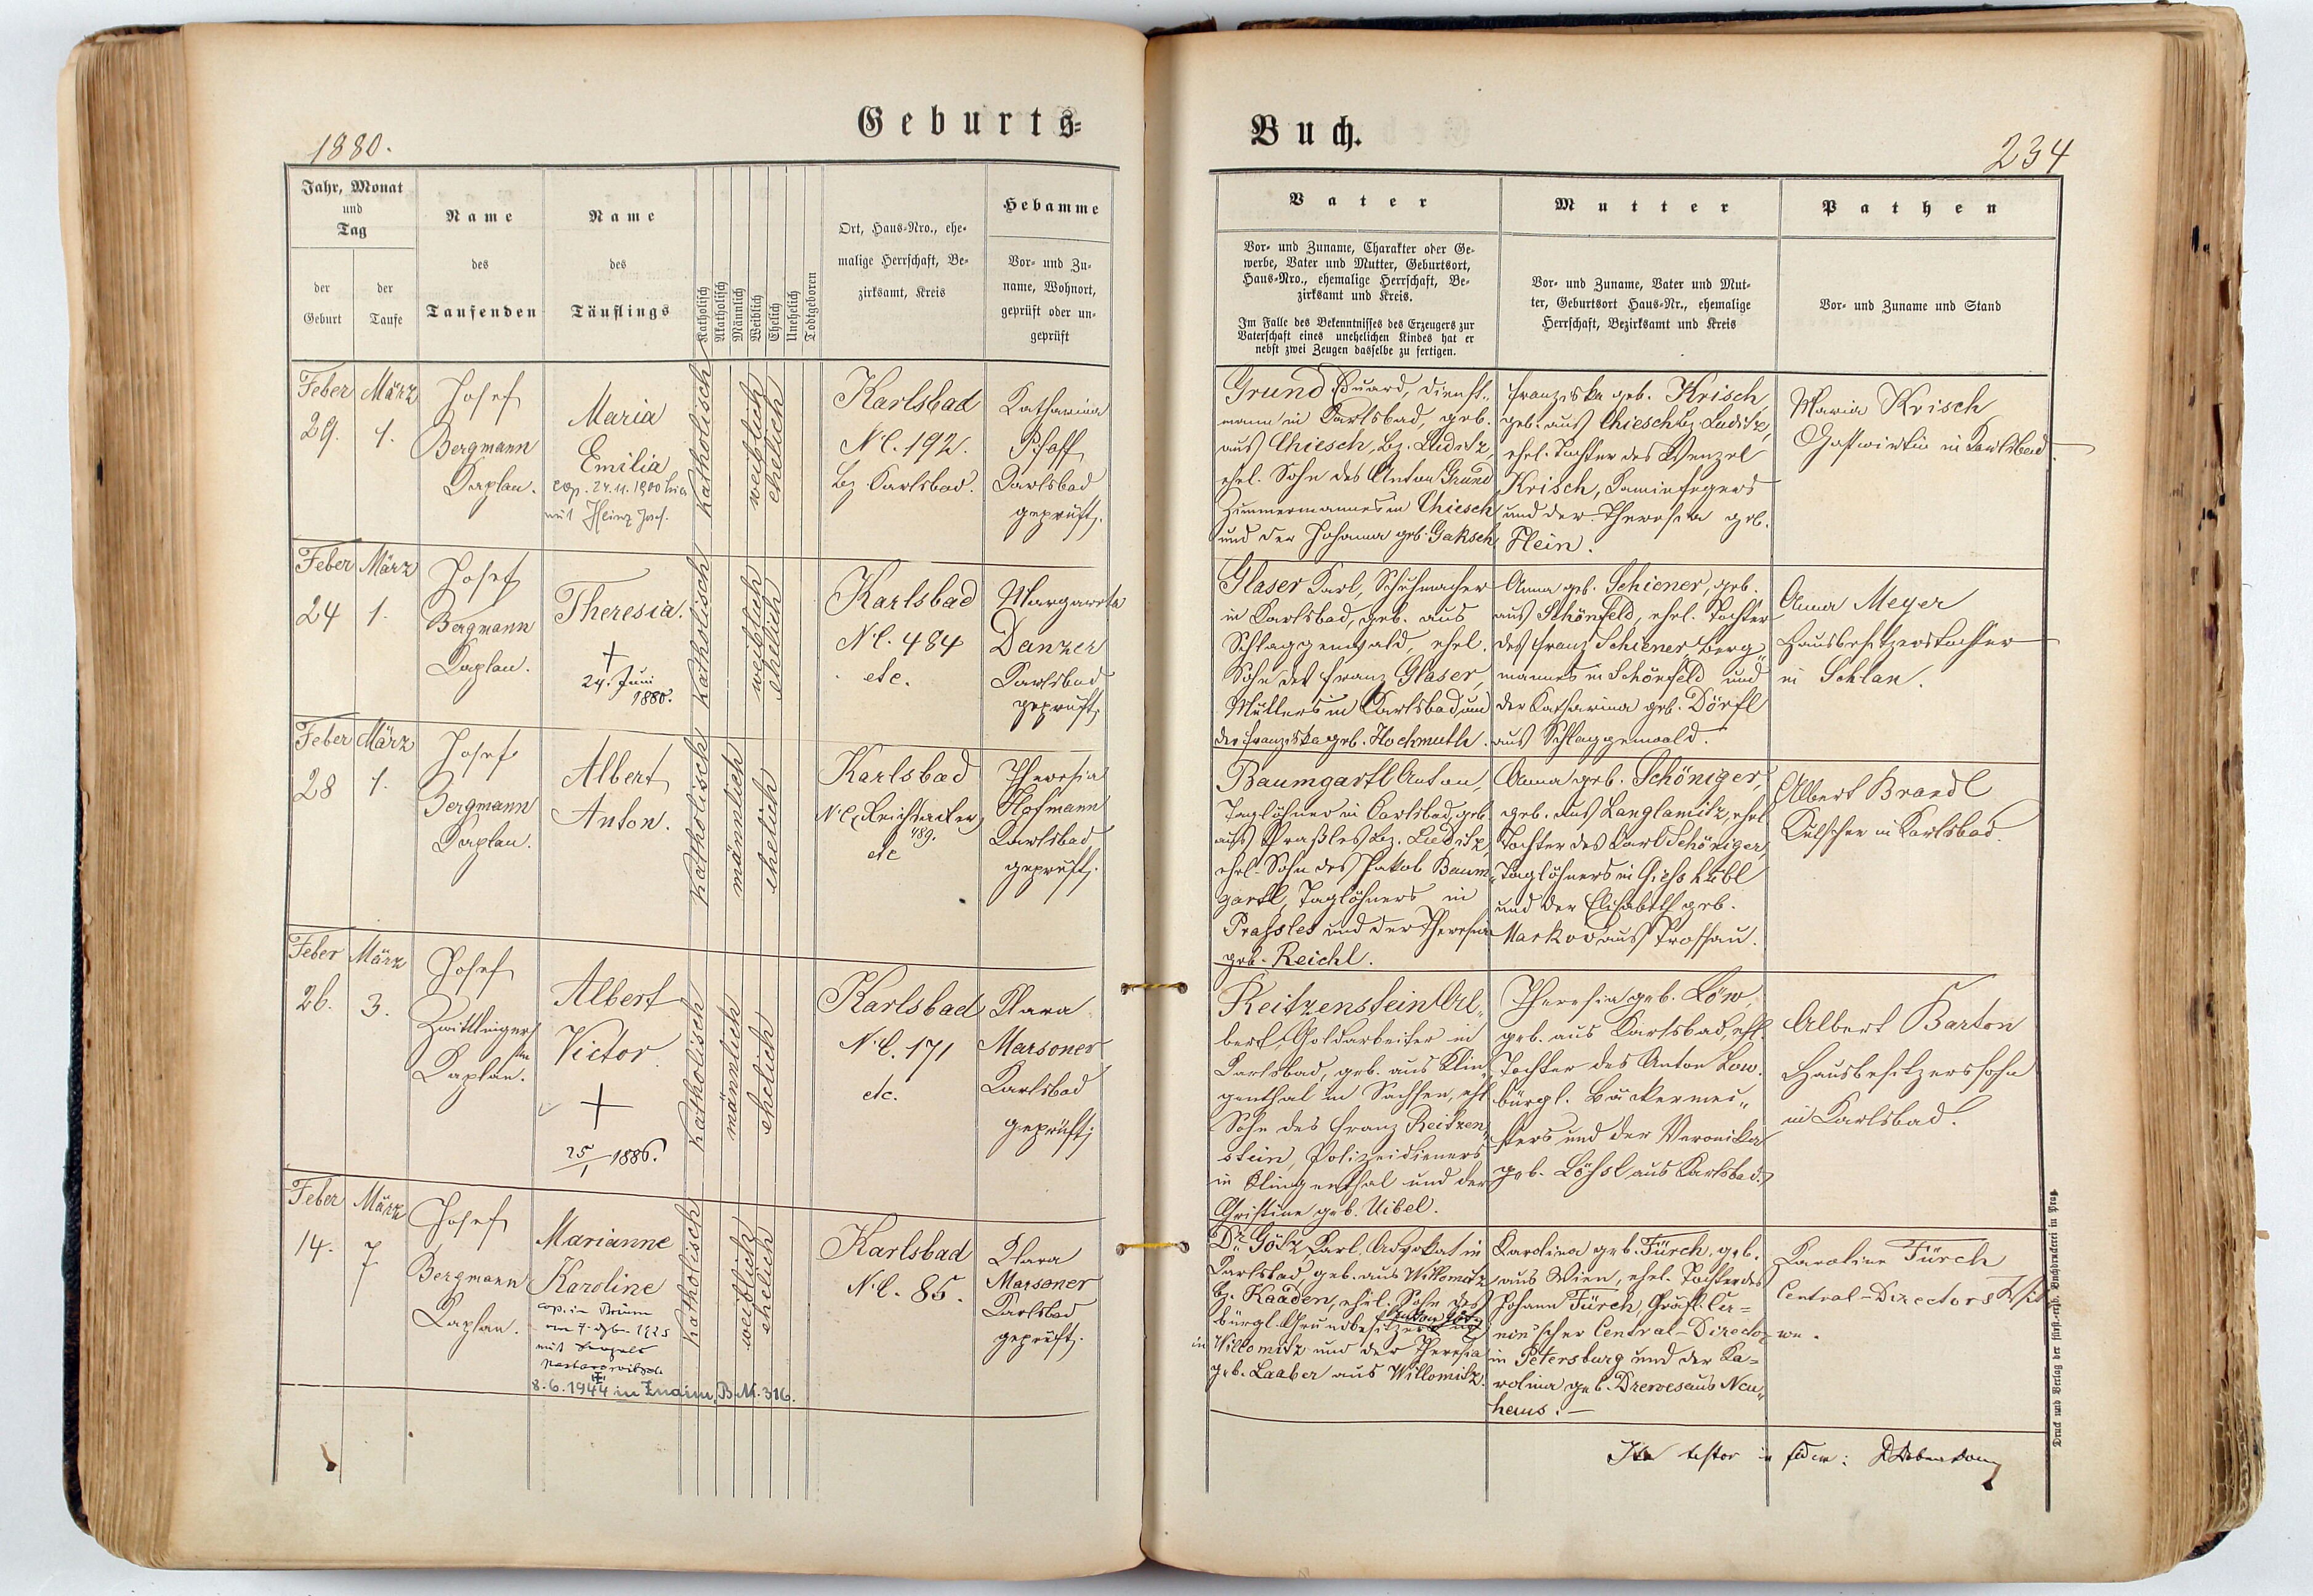 Geburts=
1880.
Jahr, Monat
und
Tag
der
Geburt
der
Taufe
Name
des
Taufenden
Name
des
Täuflings
Katholisch
Akatholisch
Männlich
Weiblich
Ehelich
Unehelich
Todtgeboren
Ort, Haus-Nro., ehe-
malige Herrschaft, Be-
zirksamt, Kreis
Hebamme
Vor- und Zu-
name, Wohnort,
geprüft oder un-
geprüft
Feber
29.
März
1.
Josef
Bergmann
Kaplan.
Maria
Emilia
cop. 24.11.1900 hier
mit Heinz Josef.
katholisch
weiblich
ehelich
Karlsbad
NC. 192.
Bz. Karlsbad.
Katharina
Pfaff
Karlsbad
geprüft.
Feber
24
März
1.
Josef
Bergmann
Kaplan.
Theresia.
+
24. Juni
1880.
katholisch
weiblich
ehelich
Karlsbad
NC. 484
etc.
Margareta
Danzer
Karlsbad
geprüft.
Feber
28
März
1.
Josef
Bergmann
Kaplan.
Albert
Anton.
katholisch
männlich
ehelich
Karlsbad
NC.
489.
etc
Theresia
Hofmann
Karlsbad
geprüft.
Feber
26.
März
3.
Josef
Zwittlinger
Kaplan.
Albert
Victor.
+
25/1 1886.
katholisch
männlich
ehelich
Karlsbad
NC. 171
etc.
Klara
Marsoner
Karlsbad
geprüft.
Feber
14.
März
7
Josef
Bergmann
Kaplan.
Marianne
Karoline
cop. in Brünn
1925
mit
8.6.1944 in Znaim, B.M. 316.
katholisch
weiblich
ehelich
Karlsbad
NC. 85.
Klara
Marsoner
Karlsbad
geprüft.
Buch.
234
Vater
Vor- und Zuname, Charakter oder Ge-
werbe, Vater und Mutter, Geburtsort,
Haus-Nro., ehemalige Herrschaft, Be-
zirksamt und Kreis.
Im Falle des Bekenntnisses des Erzeugers zur
Vaterschaft eines unehelichen Kindes hat er
nebst zwei Zeugen dasselbe zu fertigen.
Mutter
Vor- und Zuname, Vater und Mut-
ter, Geburtsort Haus-Nr., ehemalige
Herrschaft, Bezirksamt und Kreis
Pathen
Vor- und Zuname und Stand
Grund Eduard, Dienst-
mann in Karlsbad, geb.
aus Chiesch, Bz. Luditz,
ehel. Sohn des Anton Grund
Zimmermannes in Chiesch
und der Johanna geb. Gaksch
Franziska geb. Krisch,
geb. aus Chiesch Bz. Luditz,
ehel. Tochter des Wenzel
Krisch, Kaminfegers
und der Theresia geb.
Flein.
Maria Krisch
Gastwirtin in Karlsbad.
Glaser Karl, Schuhmacher
in Karlsbad, geb. aus
Schlaggenwald, ehel.
Sohn des Franz Glaser,
Müllers in Karlsbad und
der Franziska geb. Hochmuth.
Anna geb. Schiener, geb.
aus Schönfeld, ehel. Tochter
des Franz Schiener, Berg-
mannes in Schönfeld und
der Katharina geb. Dörfl
aus Schlaggenwald.
Anna Meyer
Hausbesitzerstochter
in Schlan.
Baumgartl Anton,
Taglöhner in Karlsbad, geb.
aus Praßles, Bz. Luditz,
ehel. Sohn des Jakob Baum-
gartl, Taglöhners in
Prassles und der Theresia
geb. Reichl.
Anna geb. Schöniger,
geb. aus Langlamitz, ehel.
Tochter des Karl Schöniger,
Taglöhners in Giesshübl
und der Elisabeth geb.
Markov aus Trossau.
Albert Brandl
Kutscher in Karlsbad.
Reitzenstein Al-
bert, Goldarbeiter in
Karlsbad, geb. aus Klin-
genthal in Sachsen, ehl.
Sohn des Franz Reitzen-
stein, Polizeidieners
in Klingenthal und der
Christine geb. Uibel.
Theresia geb. Löw,
geb. aus Karlsbad, ehl.
Tochter des Anton Löw.
bürgl. Bäckermei-
sters und der Veronika
geb. Lößl aus Karlsbad.
Albert Barton
Hausbesitzerssohn
in Karlsbad.
Dr. Götz Karl, Advokat in
Karlsbad, geb. aus Willomitz
Bz. Kaaden, ehel. Sohn des
Anton Götz
bürgl. Grundbesitzers
in Willomitz und der Theresia
geb. Laaber aus Willomitz.
Karolina geb. Fürch, geb.
aus Wien, ehel. Tochter des
Johann Fürch, Gräfl. Cer-
nin'scher Central-Director
in Petersburg und der Ka-
rolina geb. Drewes aus Neu-
haus. —
Karoline Fürch
Central-Directors Wit-
we.
Ita testor in fidem:
Druck und Verlag der fürst-erzb. Buchdruckerei in Prag.